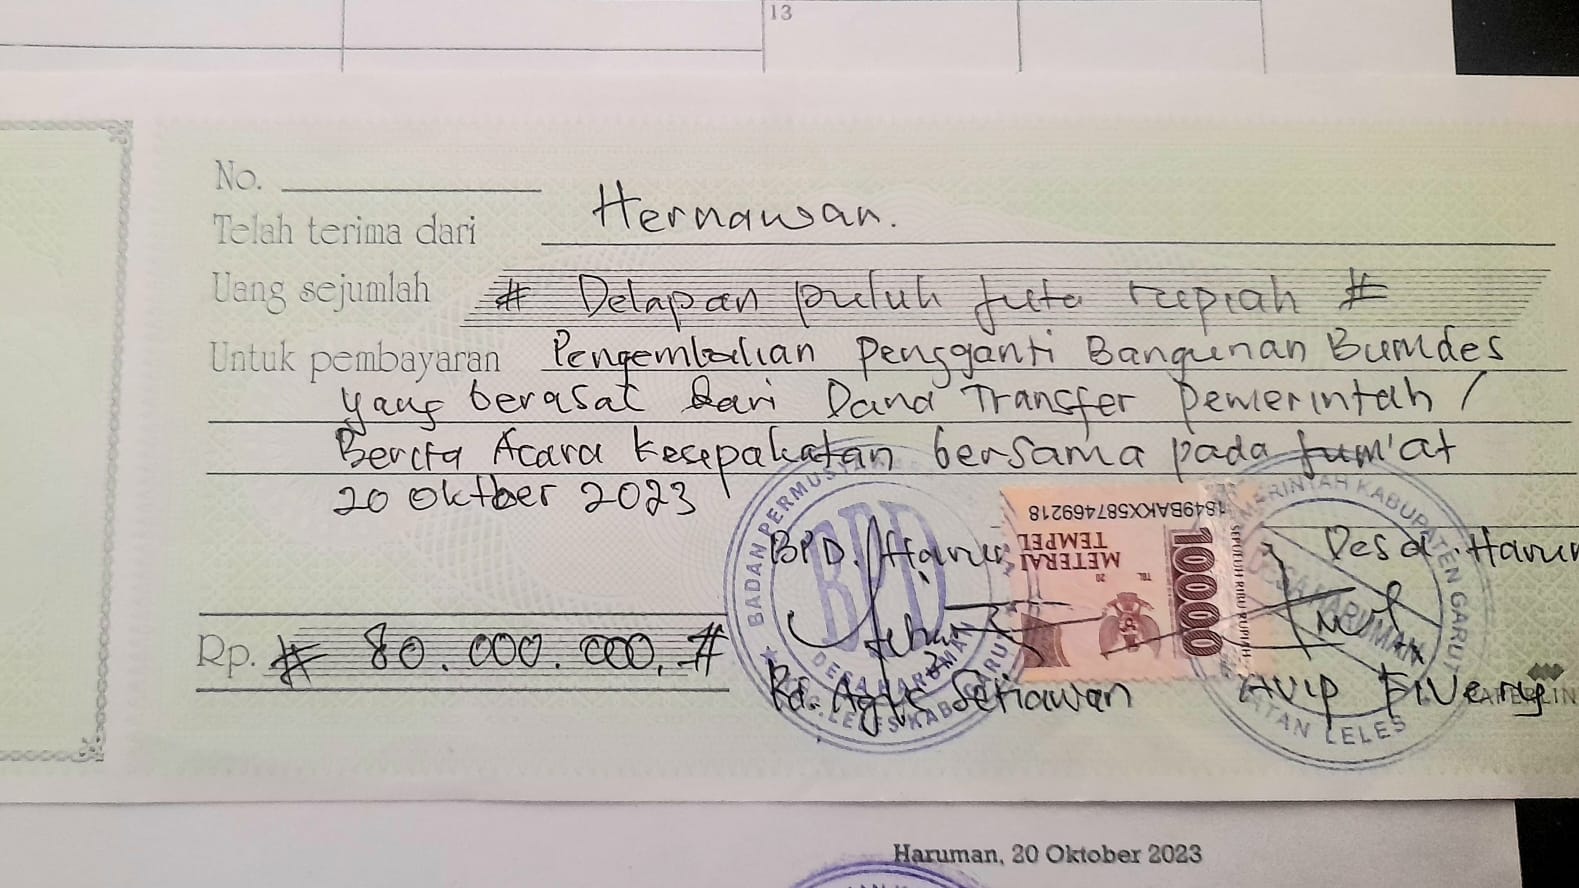 13
No.
Telah terima dari Hernawan.
Uang sejumlah # Delapan puluh juta rupiah #
Untuk pembayaran Pengembalian Pengganti Bangunan Bumdes
yang berasal dari Dana Transfer Pemerintah /
Berita Acara Kesepakatan bersama pada Jum'at
20 Oktber 2023
1849BAKX587469218
METERAI
TEMPEL
TGL 20
10000
SEPULUH RIBU RUPIAH
BPD. Harum
Desa Harum
BADAN PERMUS
BPD
DESA HARUMAN
KAB GARUT
PEMERINTAH KABUPATEN GARUT
DESA HARUMAN
LELES
Rp. # 80.000.000, #
Rd. Agus Setiawan
Haruman, 20 Oktober 2023